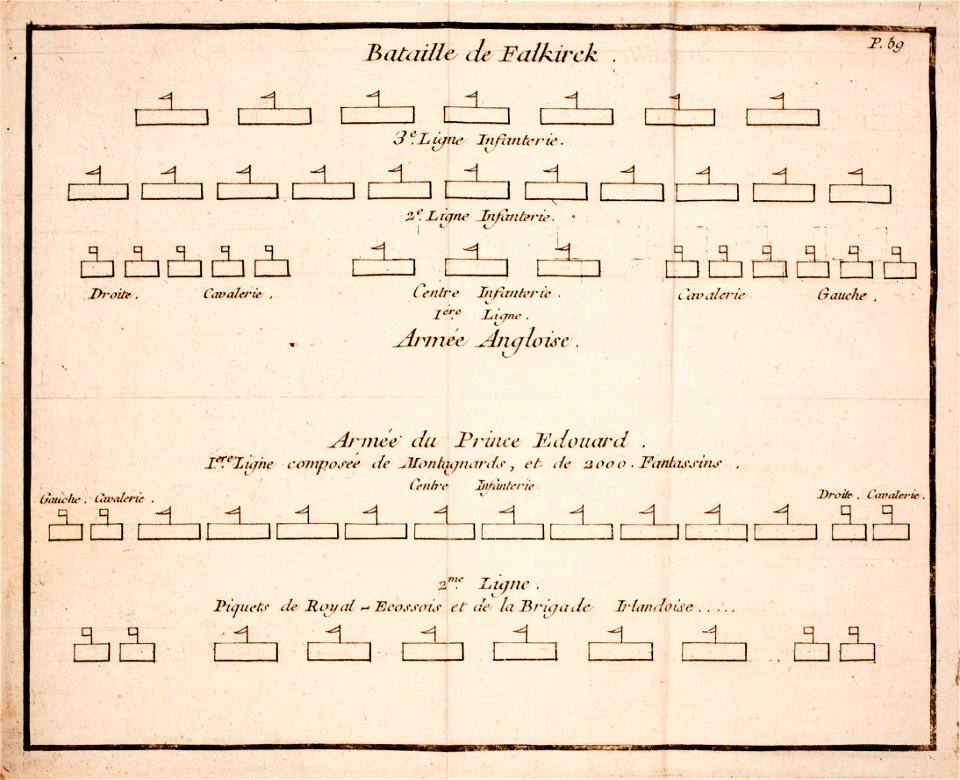 P. 69
Bataille de Falkirck.
3e. Ligne Infanterie.
2e. Ligne Infanterie.
Droite. Cavalerie. Centre Infanterie. Cavalerie Gauche.
1ére. Ligne.
Armée Angloise.
Armée du Prince Edouard.
1ere. Ligne composée de Montagnards, et de 2000. Fantassins.
Centre Infanterie
Gauche. Cavalerie. Droite. Cavalerie.
2me. Ligne.
Piquets de Royal-Ecossois et de la Brigade Irlandoise.....